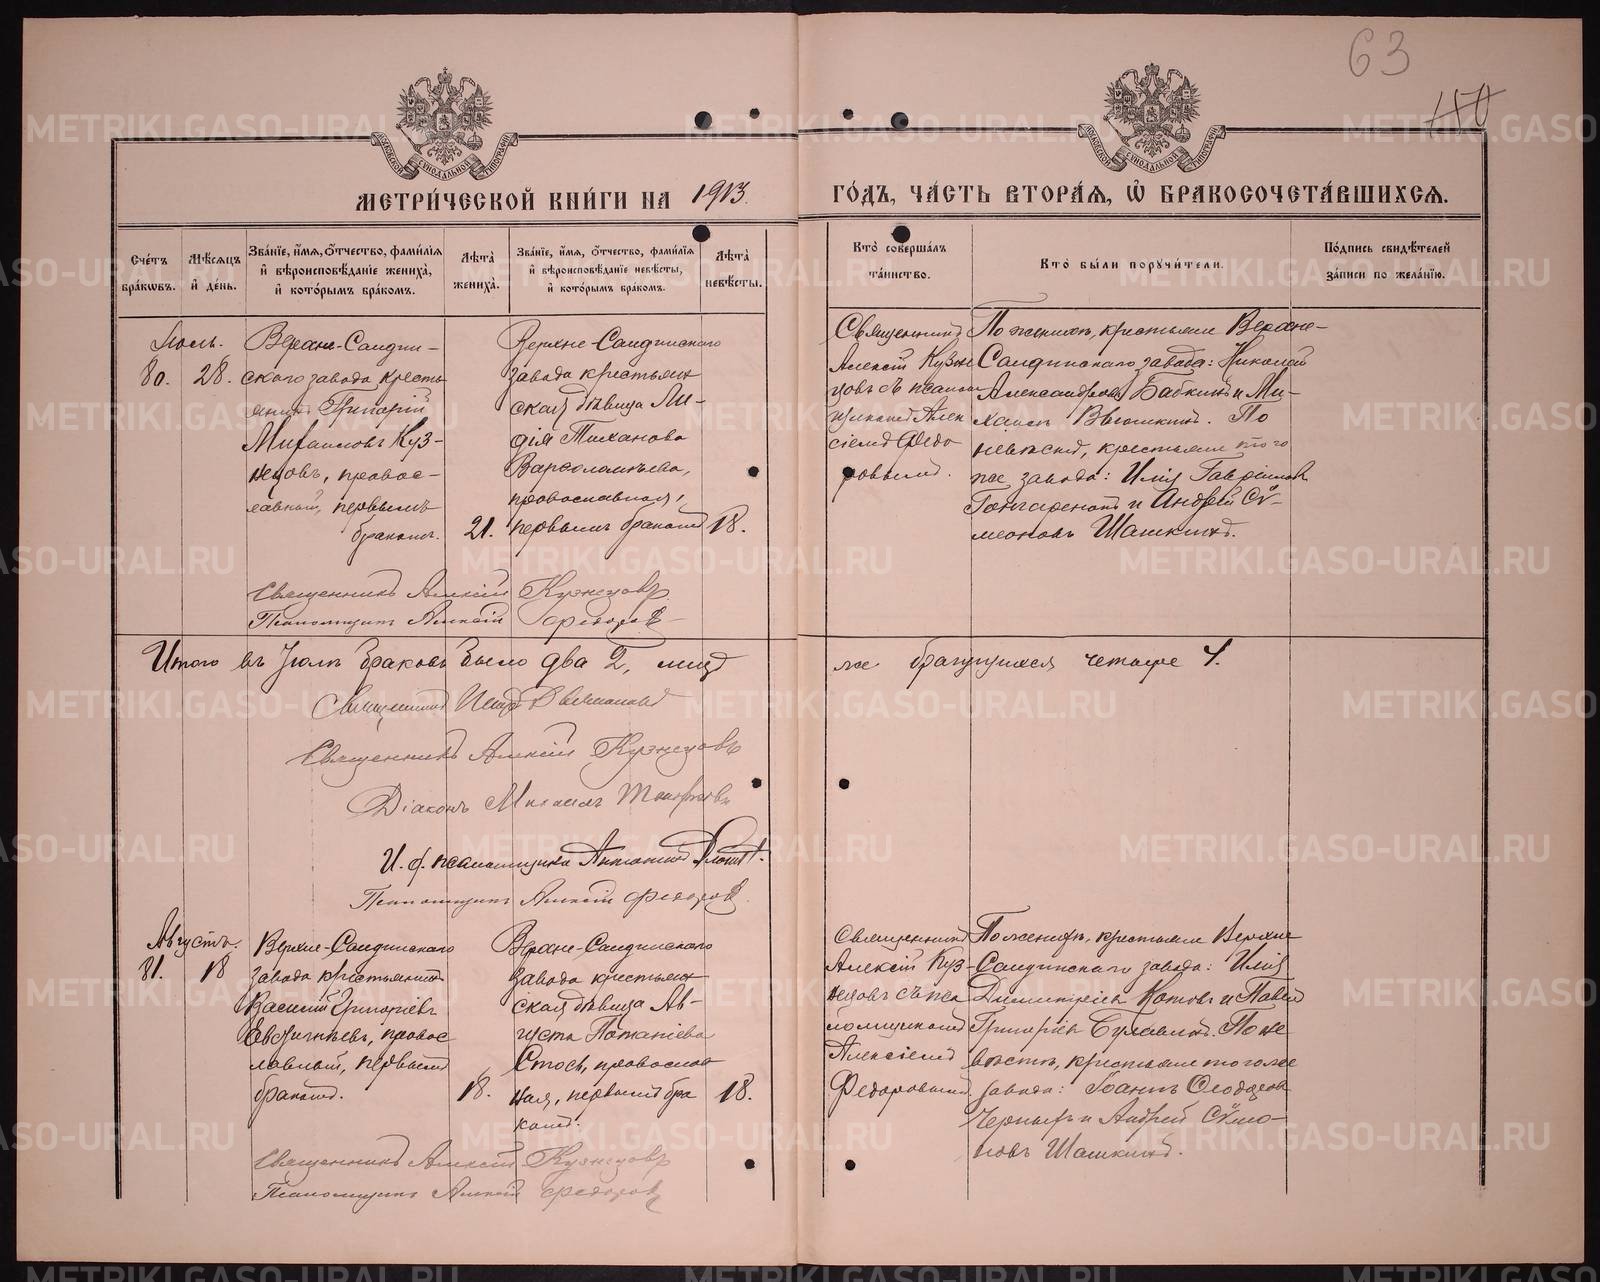 63
МЕТРИ́ЧЕСКОЙ КНИ́ГИ НА 1913 ГО́ДЪ, ЧА́СТЬ ВТОРА́Я, Ѡ҆ БРАКОСОЧЕТА́ВШИХСЯ.
Сче́тъ бра́ковъ.
Мѣ́сяцъ и҆ де́нь.
Зва́нїе, и҆́мя, ѻ҆́тчество, фамилїя и҆ вѣроисповѣ́данїе жениха̀, и҆ кото́рымъ бра́комъ.
Лѣ́та жениха̀.
Зва́нїе, и҆́мя, ѻ҆́тчество, фамилїя и҆ вѣроисповѣ́данїе невѣ́сты, и҆ кото́рымъ бра́комъ.
Лѣ́та невѣ́сты.
Кто̀ соверша́лъ та́инство.
Кто̀ бы́ли пор̾чи́тели.
По́дпись свидѣ́телей за́писи по жела́нїю.
Іюль.
80. 28.
Верхне-Салдин-
скаго завода кресть
янинъ Григорій
Михаиловъ Куз-
нецовъ, правос-
лавный, первымъ
бракомъ.
21.
Верхне-Салдинскаго
завода крестьян
ская дѣвица Ли-
дія Тиханова
Варѳоломѣева,
православная,
первымъ бракомъ
18.
Священникъ
Алексій Кузне
цовъ съ псалом
щикомъ Алек
сіемъ Ѳедо
ровымъ.
По женихѣ, крестьяне Верхне-
Салдинскаго завода: Николай
Александровъ Бабкинъ и Ми-
хаилъ Вьюшкинъ. По
невѣстѣ, крестьяне того
же завода: Илія Гавріиловъ
Гончаренокъ и Андрей Сѵ-
меоновъ Шашкинъ.
Священникъ Алексій Кузнецовъ
Псаломщикъ Алексій Ѳедоровъ
Итого въ Іюлѣ браковъ было два 2, лицъ
же брачущихся четыре 4.
Священникъ
Священникъ Алексій Кузнецовъ
Діаконъ Михаилъ
И. д. псаломщика
Псаломщикъ Алексій Ѳедоровъ
Августъ.
81. 18
Верхне-Салдинскаго
завода крестьянинъ
Василій Григоріевъ
Евдигнѣевъ, правос
лавный, первымъ
бракомъ.
18.
Верхне-Салдинскаго
завода крестьян
ская дѣвица Ав-
густа Потапіева
православ
ная, первымъ бра
комъ.
18.
Священникъ
Алексій Куз-
нецовъ съ пса
ломщикомъ
Алексіемъ
Ѳедоровымъ.
По женихѣ, крестьяне Верхне
Салдинскаго завода: Илія
Димитріевъ Котовъ и Павелъ
Григоріевъ Булавинъ. По не
вѣстѣ, крестьяне того же
завода: Іоаннъ Ѳеодоровъ
Черныхъ и Андрей Сѵмео-
новъ Шашкинъ.
Священникъ Алексій Кузнецовъ
Псаломщикъ Алексій Ѳедоровъ
METRIKI.GASO-URAL.RU